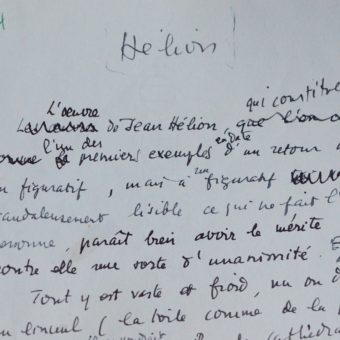 [Hélion]
qui constitue
L'œuvre
de Jean Hélion, que l'on
l'un des en date
comme premiers exemples d'un retour
un figuratif, mais à un figuratif
scandaleusement lisible ce qui ne fait l'
personne, paraît bien avoir le mérite
contre elle une sorte d'unanimité.
Tout y est vaste et froid, nu
un linceul (la toile comme de la